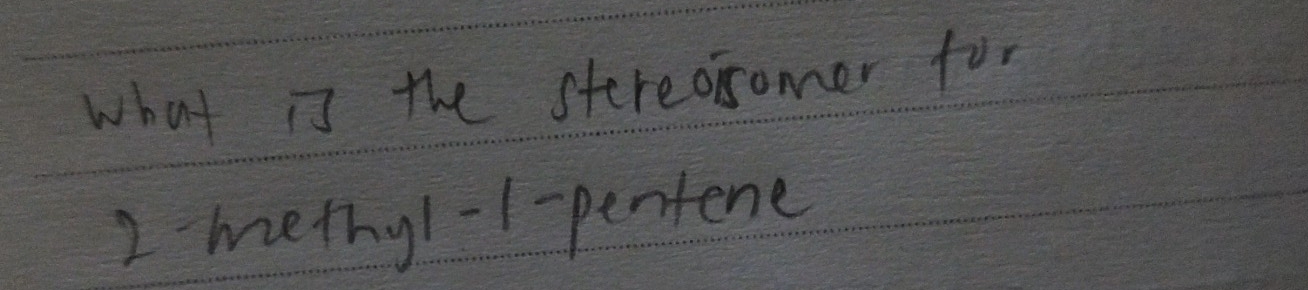 what is the stereoisomer for
2-methyl-1-pentene